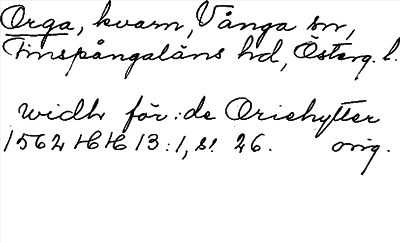 Orga, kvarn, Vånga sn,
Finspångaläns hd, Österg. l.
widh för: de Oriehytter
1562 HH 13:1, s. 26. orig.